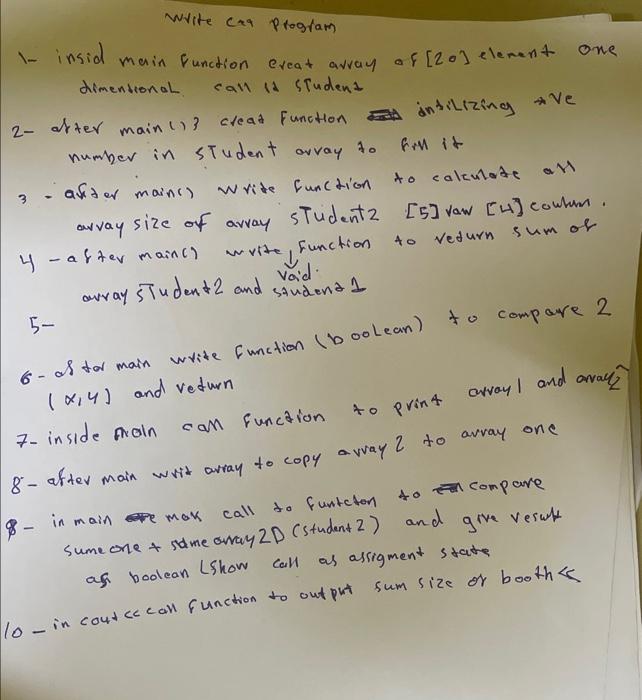 write C++ program
1- insid main function creat array of [20] element one
dimentional call it student
2- after main() } creat Function intilizing +ve
number in student array to fill it
3- after main() write function to calculate all
array size of array student2 [5] raw [4] coulum.
4- after main() write function to return sum of
void
array student2 and student 1
5-
6- after main write function (boolean) to compare 2
(x,y) and return
7- inside main call function to print array1 and array2
8- after main writ array to copy array 2 to array one
9- in main mak call to funtcton to compare
sume one + sume array 2D (student2) and give result
as boolean (show call as assigment state
10- in cout << call function to output sum size of booth <<